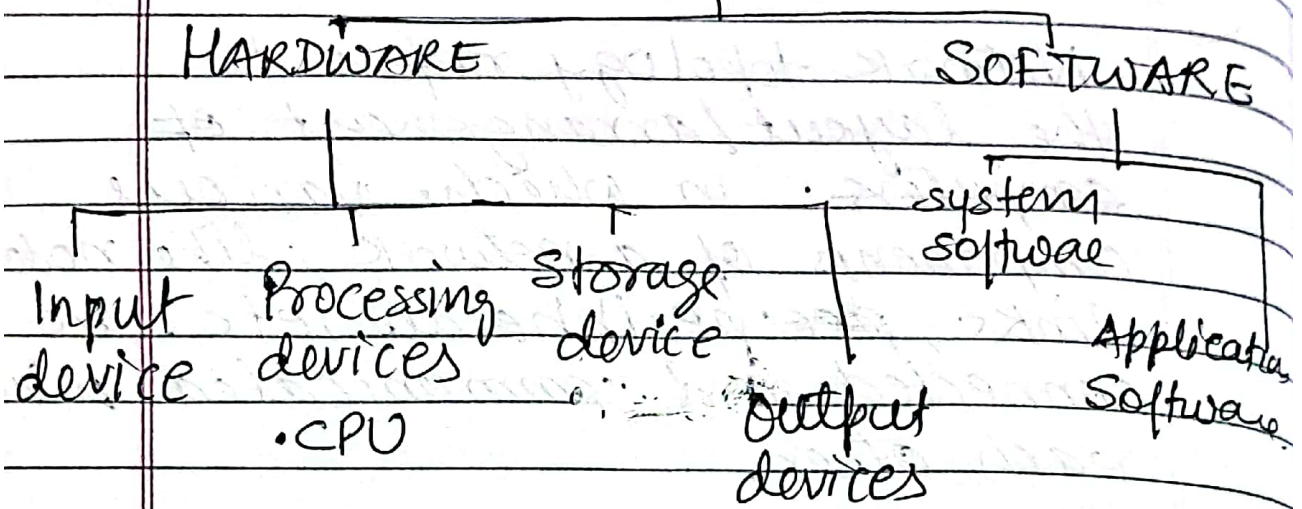 HARDWARE
SOFTWARE
Input
device
Processing
devices
.CPU
Storage
device
Output
devices
system
softwae
Application
Software